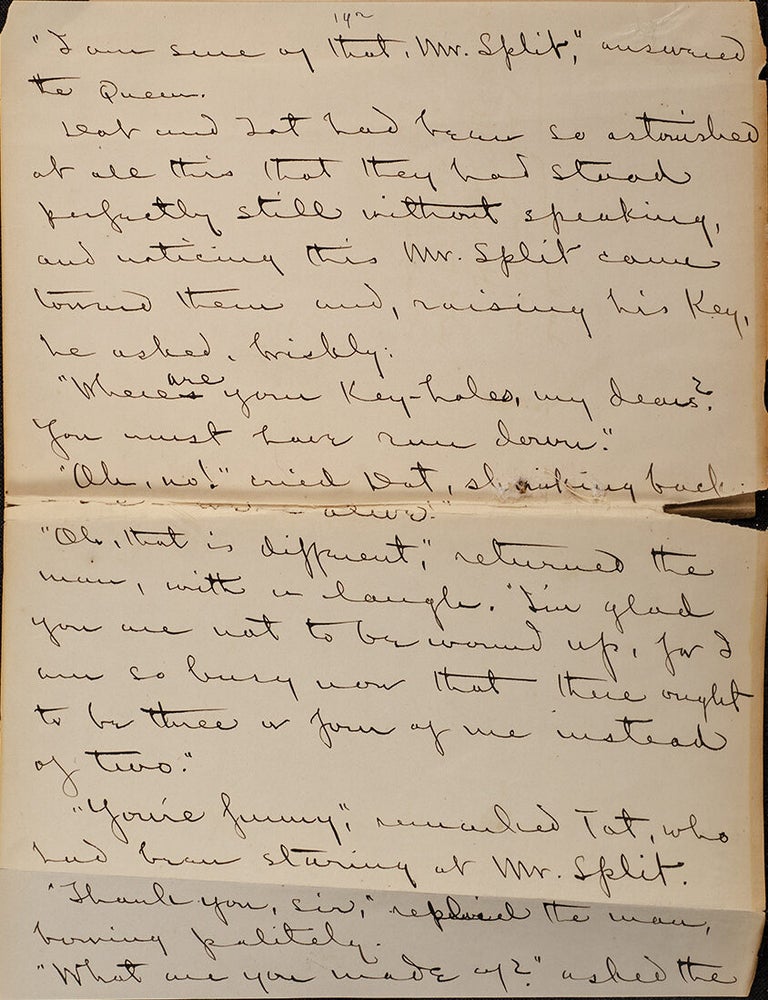 142
"I am sure of that, Mr. Split," answered
the Queen.
Dot and Tot had been so astonished
at all this that they had stood
perfectly still without speaking,
and noticing this Mr. Split came
toward them and, raising his Key,
he asked, briskly:
"Where are your Key-holes, my dears?
You must have run down."
"Oh, no!" cried Dot, shrinking back.
alive."
"Oh, that is different," returned the
man, with a laugh. "I'm glad
you are not to be wound up, for I
am so busy now that there ought
to be three or four of me instead
of two."
"You're funny", remarked Tot, who
had been staring at Mr. Split.
"Thank you, sir," replied the man,
bowing politely.
"What are you made of?" asked the